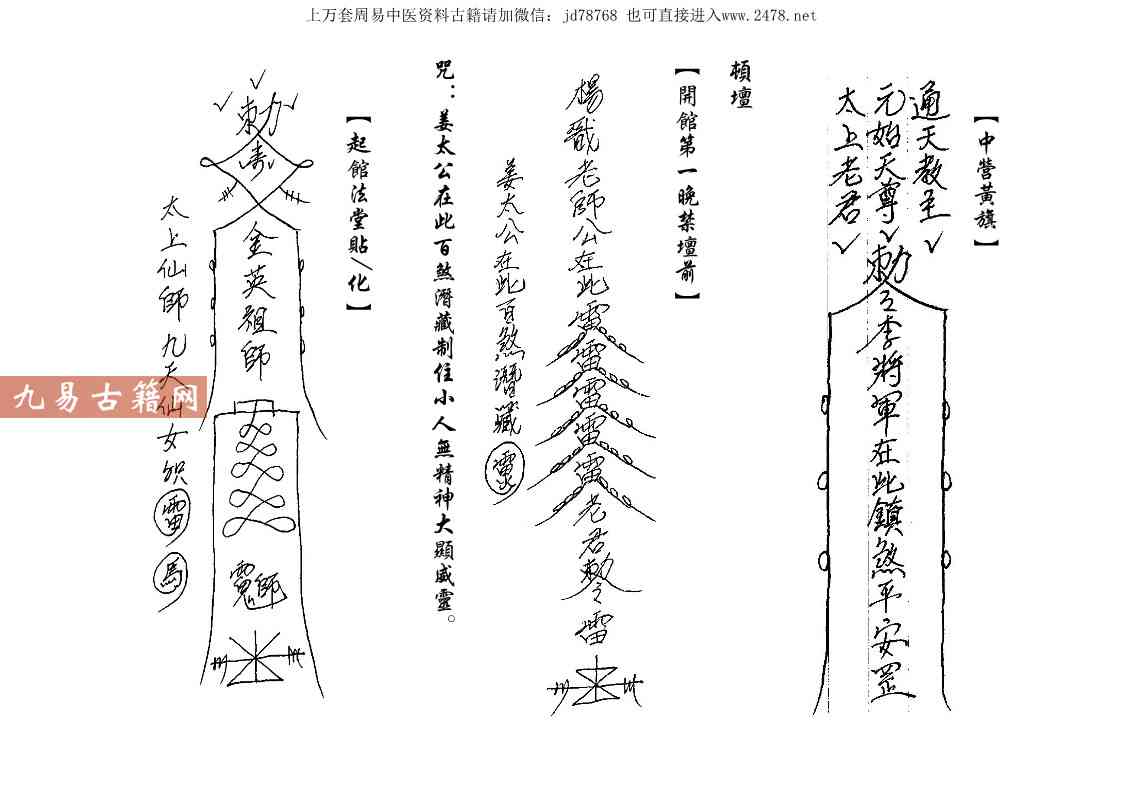 上万套周易中医资料古籍请加微信：jd78768 也可直接进入www.2478.net
【中營黃旗】
通天教主
元始天尊
太上老君
勅令李將軍在此鎮煞平安罡
頓壇
【開館第一晚禁壇前】
楊戩老師公在此雷雷雷雷雷老君勅令雷
姜太公在此百煞潛藏
咒：姜太公在此百煞潛藏制住小人無精神大顯威靈。
【起館法堂貼／化】
勅
金英祖師
師
太上仙師九天仙女
雷
馬
九易古籍网